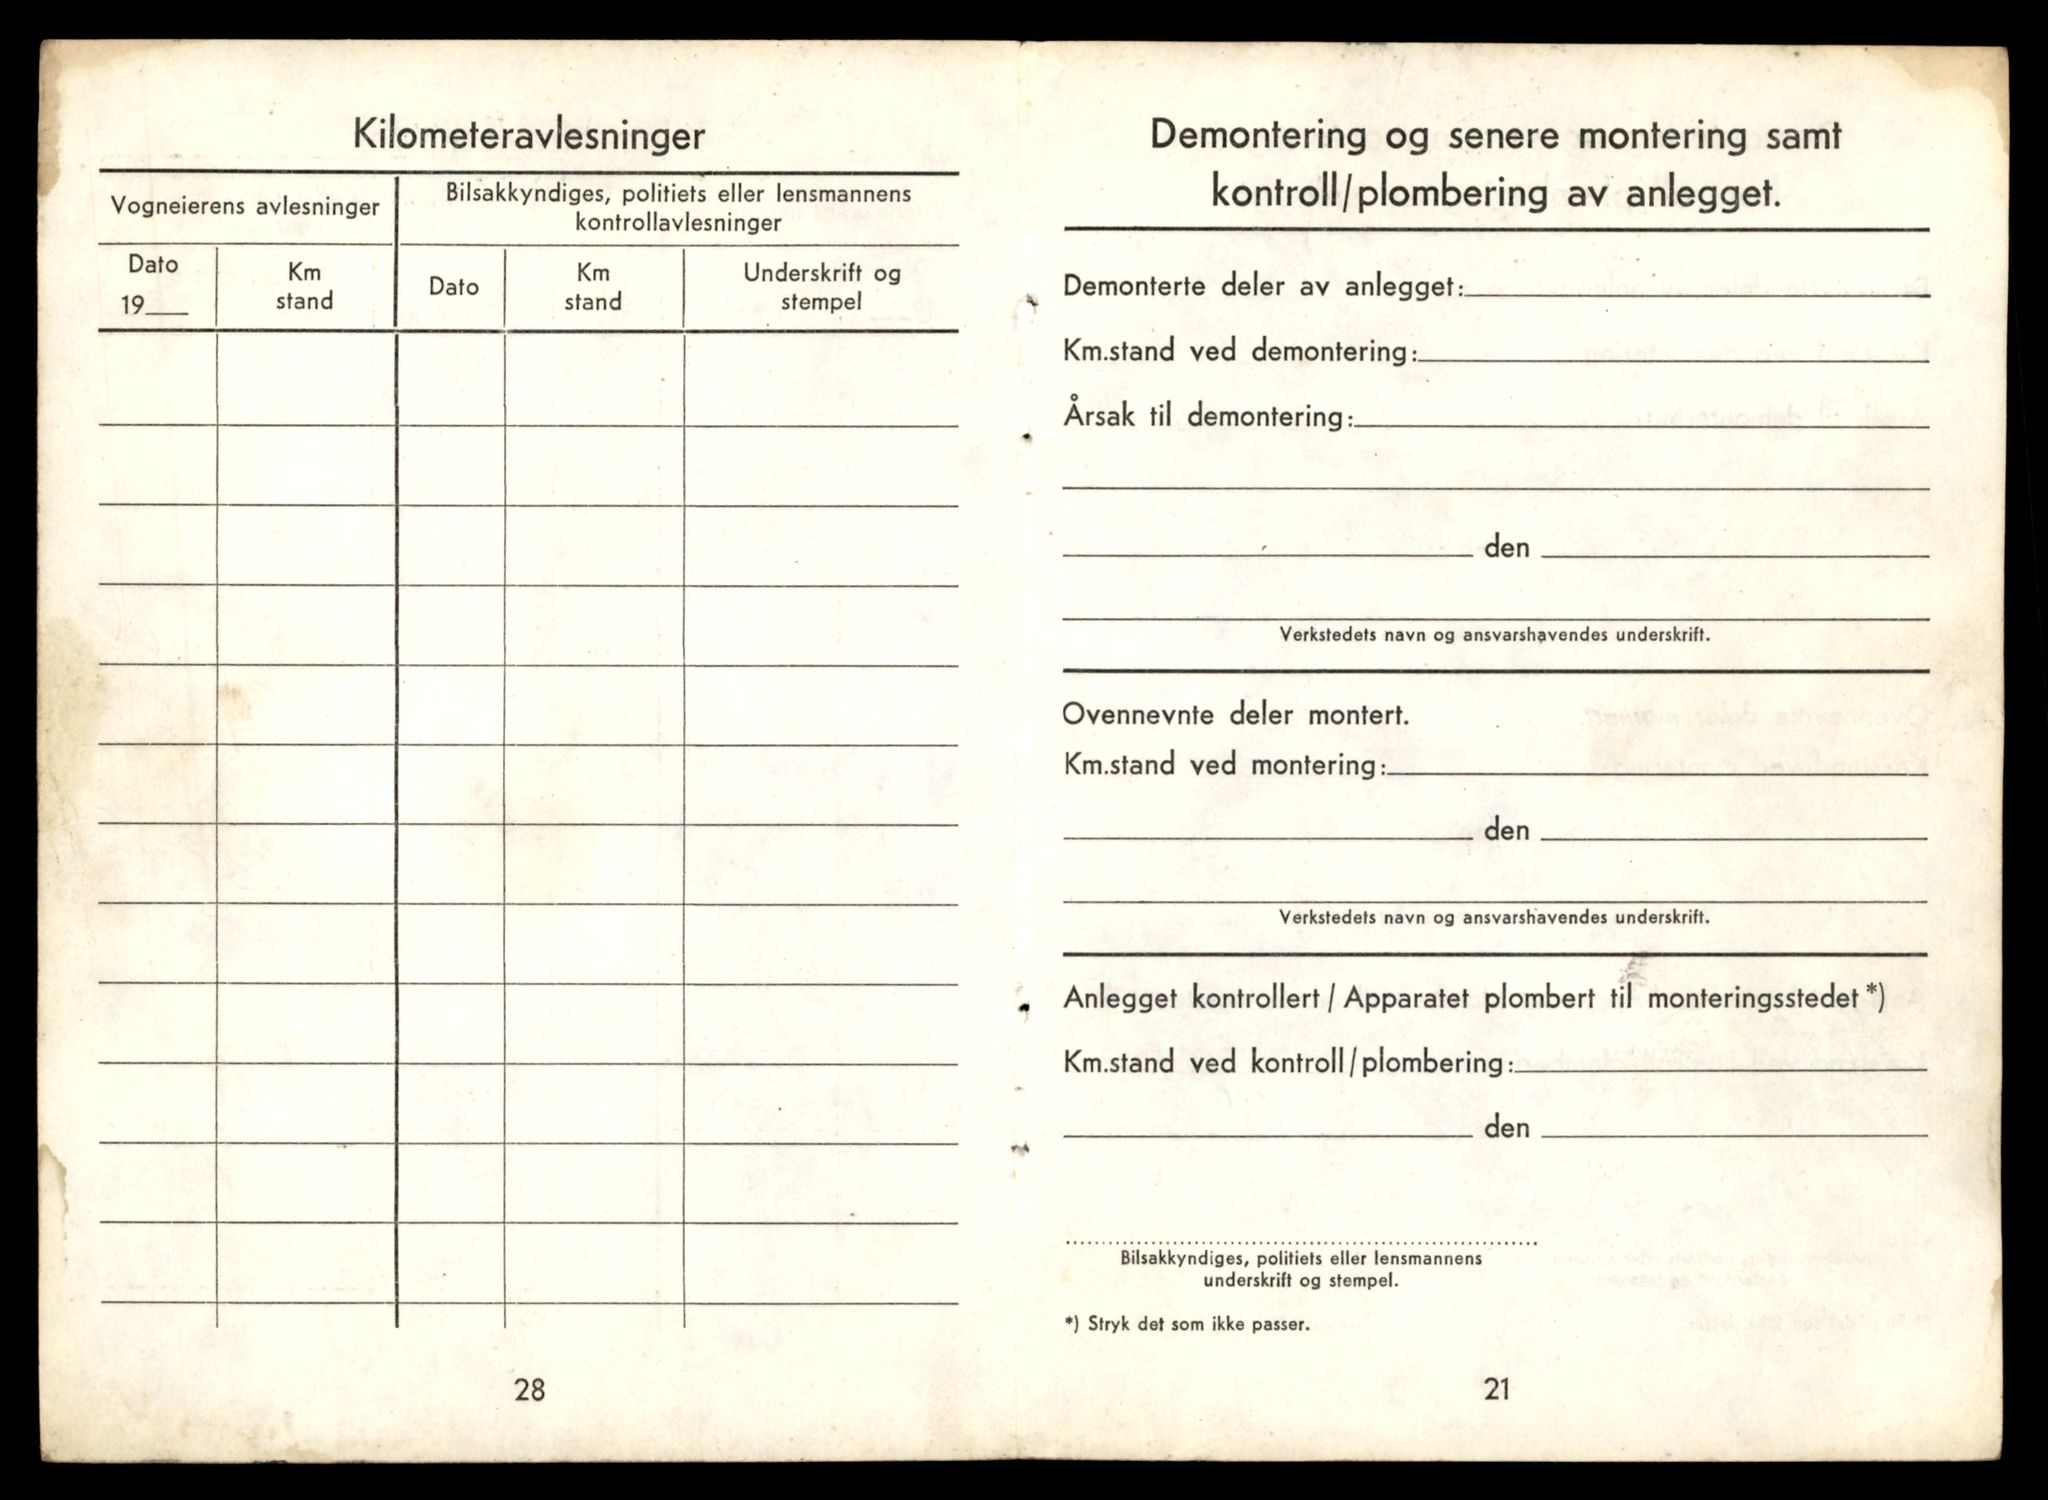 Kilometeravlesninger
Vogneierens avlesninger
Bilsakkyndiges, politiets eller lensmannens
kontrollavlesninger
Dato
19___
Km
stand
Dato
Km
stand
Underskrift og
stempel
28
Demontering og senere montering samt
kontroll/plombering av anlegget.
Demonterte deler av anlegget:
Km.stand ved demontering:
Årsak til demontering:
den
Verkstedets navn og ansvarshavendes underskrift.
Ovennevnte deler montert.
Km.stand ved montering:
den
Verkstedets navn og ansvarshavendes underskrift.
Anlegget kontrollert / Apparatet plombert til monteringsstedet *)
Km.stand ved kontroll/plombering:
den
Bilsakkyndiges, politiets eller lensmannens
underskrift og stempel.
*) Stryk det som ikke passer.
21